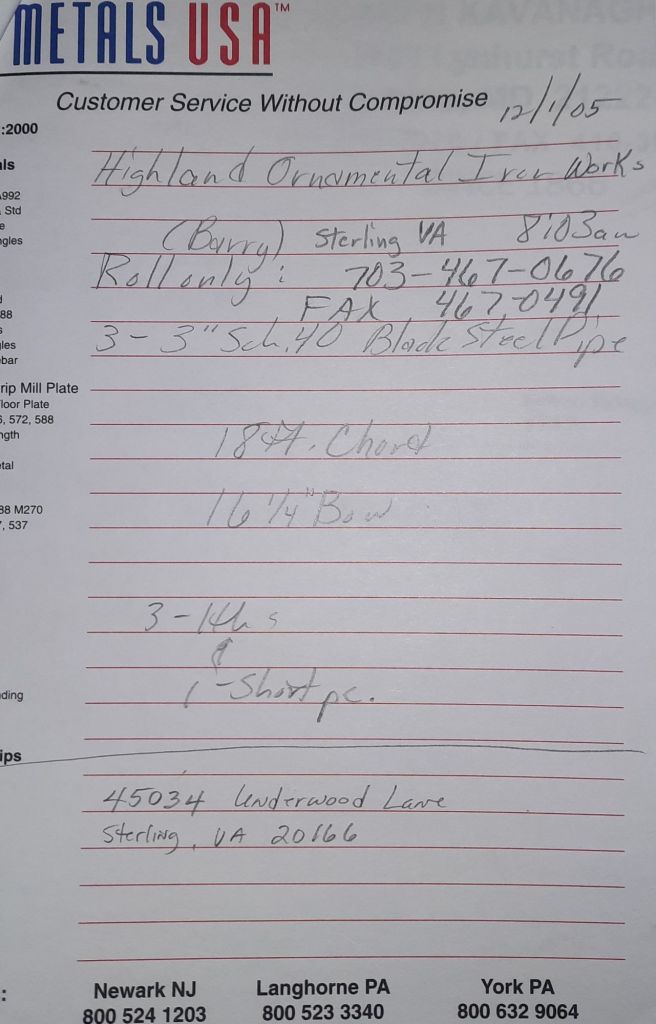 METALS USA™
Customer Service Without Compromise
12/1/05
:2000
Highland Ornamental Iron Works
als
A992
Std
(Barry) Sterling VA 8:03am
ngles
Roll only : 703-467-0676
FAX 467-0491
88
3 - 3" Sch. 40 Black Steel Pipe
gles
bar
rip Mill Plate
loor Plate
6, 572, 588
ngth
18 ft. Chord
etal
16 1/4" Bow
88 M270
, 537
3 - lths
&
1 - Short pc.
ding
ips
45034 Underwood Lane
Sterling, VA 20166
: Newark NJ Langhorne PA York PA
800 524 1203 800 523 3340 800 632 9064